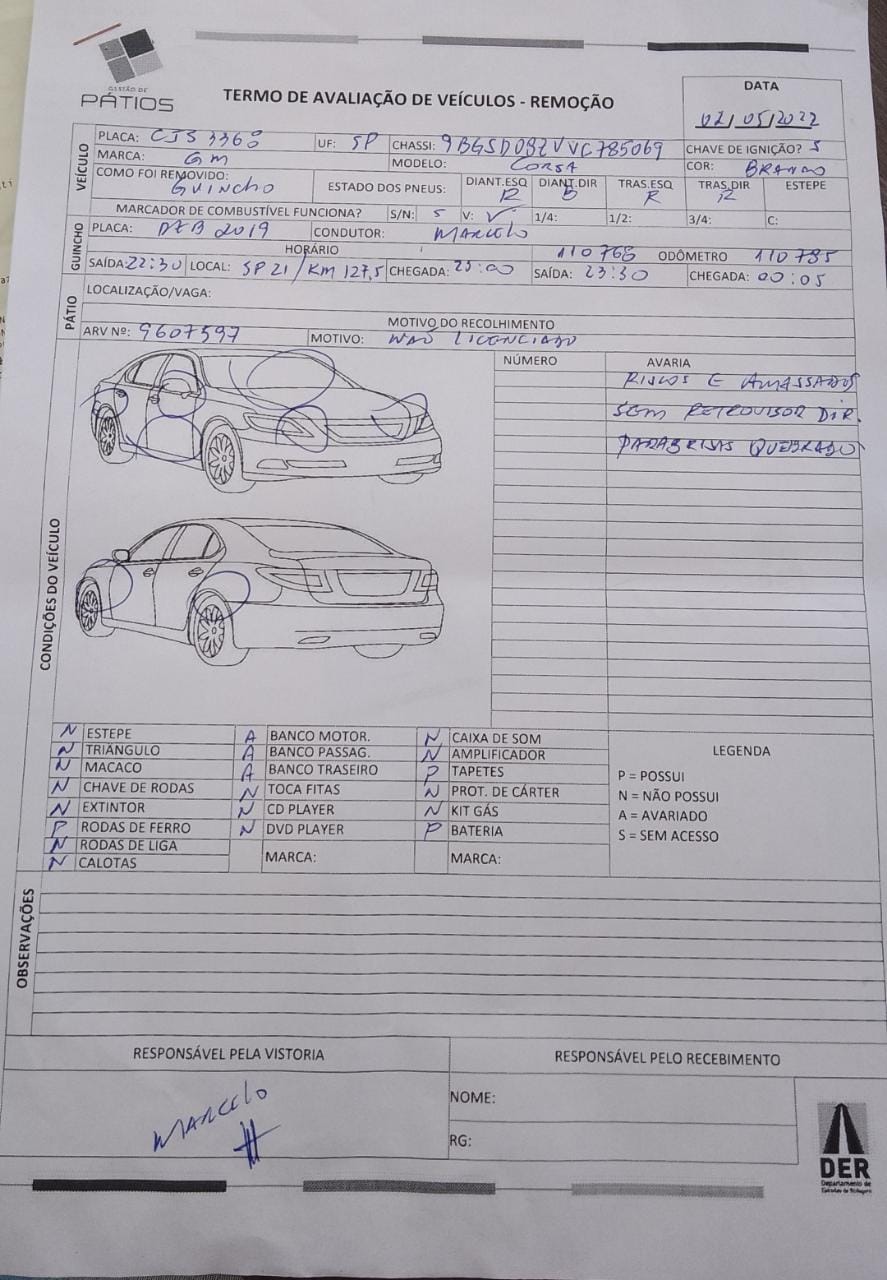 GESTÃO DE
PÁTIOS
TERMO DE AVALIAÇÃO DE VEÍCULOS - REMOÇÃO
DATA
02/05/2022
VEÍCULO
PLACA: CJS 3368 UF: SP CHASSI: 9BGSD08ZVVC785069 CHAVE DE IGNIÇÃO? S
MARCA: GM MODELO: CORSA COR: BRANCO
COMO FOI REMOVIDO: GUINCHO ESTADO DOS PNEUS: DIANT.ESQ R DIANT.DIR B TRAS.ESQ R TRAS.DIR R ESTEPE
MARCADOR DE COMBUSTÍVEL FUNCIONA? S/N: S V: ✓ 1/4: 1/2: 3/4: C:
GUINCHO
PLACA: DFB 2019 CONDUTOR: MARCELO
HORÁRIO 110768 ODÔMETRO 110785
SAÍDA: 22:30 LOCAL: SP 21 / KM 127,5 CHEGADA: 23:00 SAÍDA: 23:30 CHEGADA: 00:05
PÁTIO
LOCALIZAÇÃO/VAGA:
MOTIVO DO RECOLHIMENTO
ARV Nº: 9607597 MOTIVO: NÃO LICENCIADO
CONDIÇÕES DO VEÍCULO
NÚMERO AVARIA
RISCOS E AMASSADOS
SEM RETROVISOR DIR.
PARABRISAS QUEBRADO
N ESTEPE A BANCO MOTOR. N CAIXA DE SOM
N TRIÂNGULO A BANCO PASSAG. N AMPLIFICADOR
N MACACO A BANCO TRASEIRO P TAPETES
N CHAVE DE RODAS N TOCA FITAS N PROT. DE CÁRTER
N EXTINTOR N CD PLAYER N KIT GÁS
P RODAS DE FERRO N DVD PLAYER P BATERIA
N RODAS DE LIGA MARCA: MARCA:
N CALOTAS
LEGENDA
P = POSSUI
N = NÃO POSSUI
A = AVARIADO
S = SEM ACESSO
OBSERVAÇÕES
RESPONSÁVEL PELA VISTORIA RESPONSÁVEL PELO RECEBIMENTO
MARCELO
NOME:
RG:
DER
Departamento de
Estradas de Rodagem